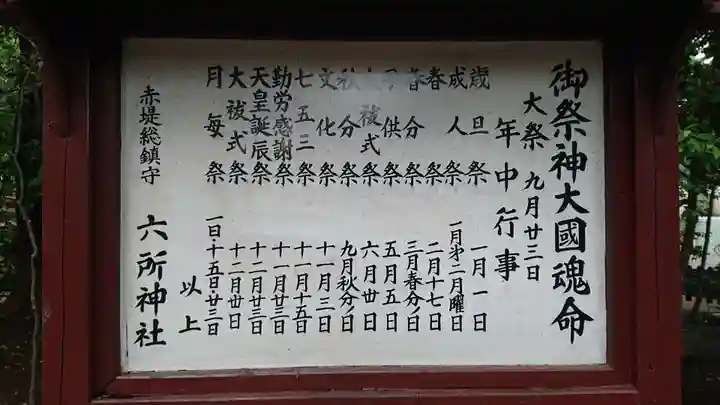 御祭神大國魂命
大祭 九月廿三日
年中行事
歳旦祭 一月一日
成人祭 一月第二月曜日
春祭 二月十七日
春分祭 三月春分ノ日
供祭 五月五日
大祓式 六月卅日
秋分祭 九月秋分ノ日
文化祭 十一月三日
七五三祭 十一月十五日
勤労感謝祭 十一月廿三日
天皇誕辰祭 十二月廿三日
大祓式祭 十二月卅日
月每祭 一日・十五日・廿三日
以上
赤堤総鎮守 六所神社